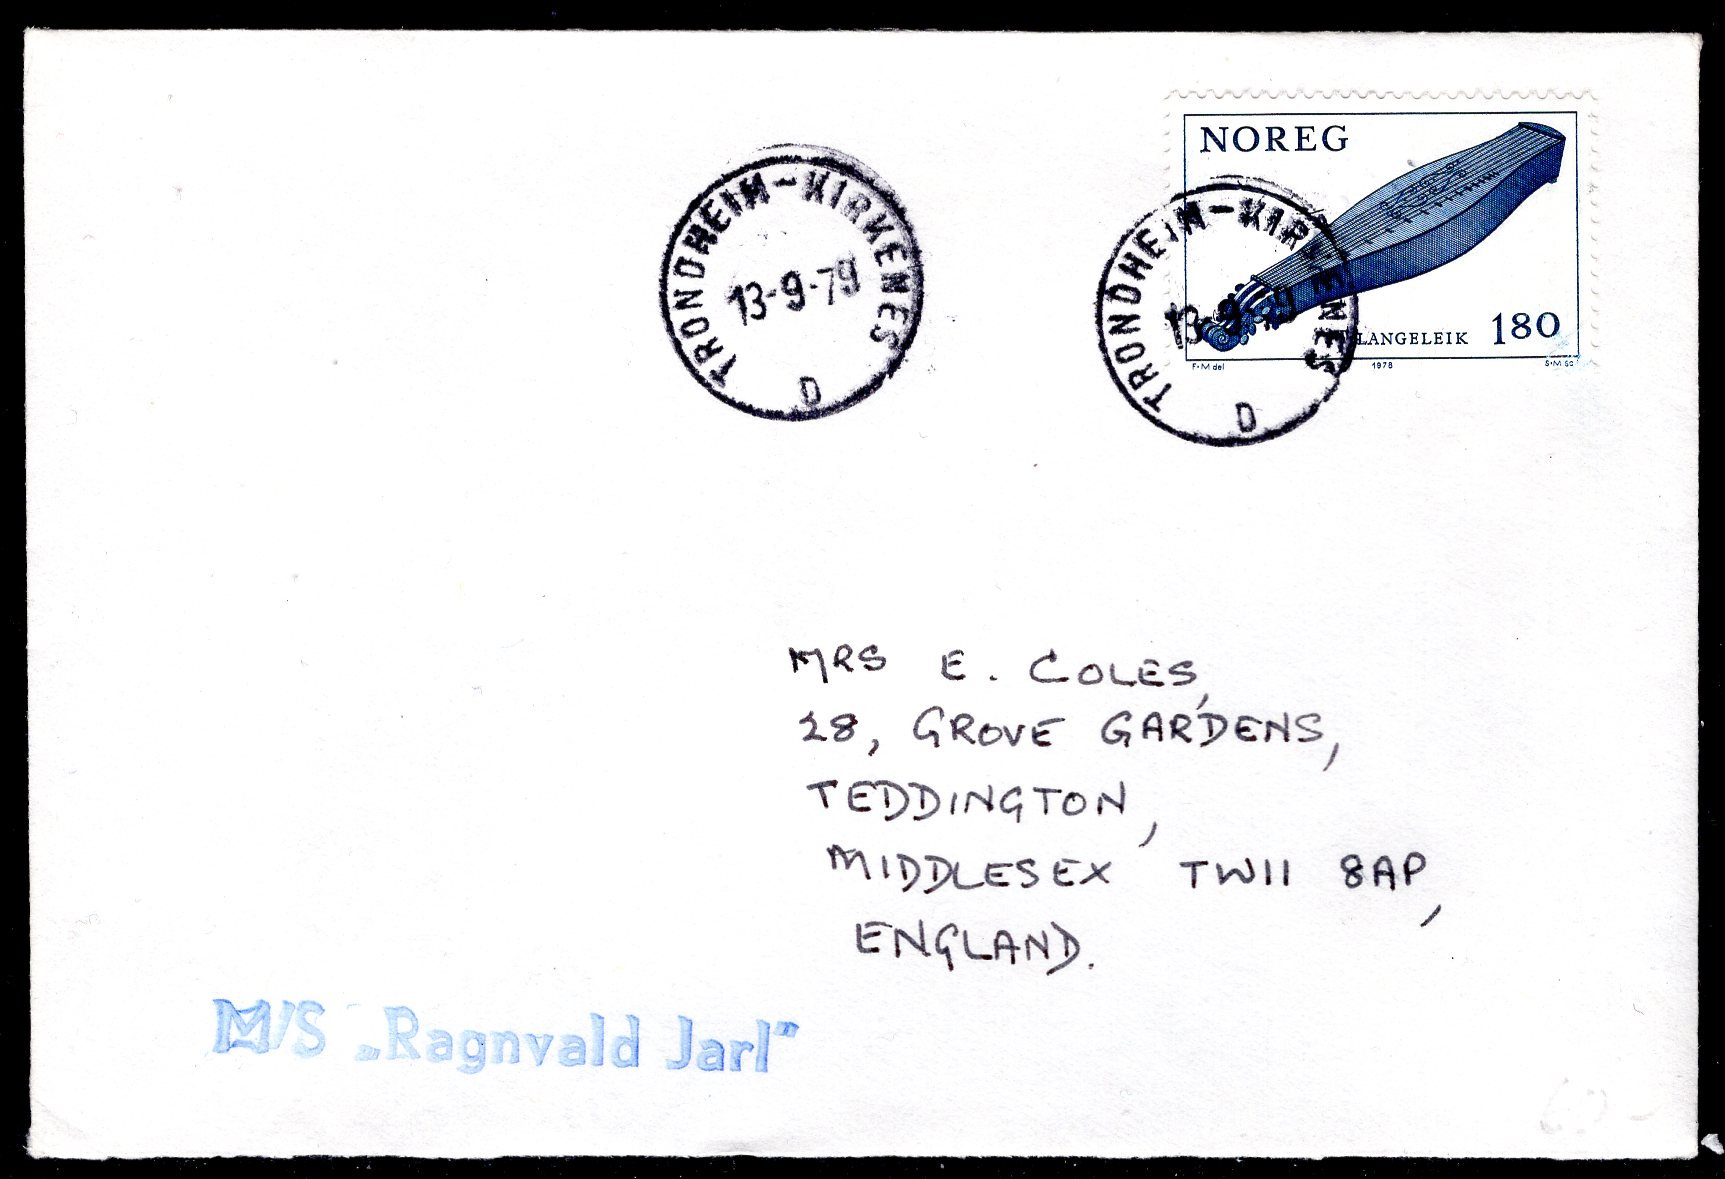 NOREG
LANGELEIK 180
F•M del 1978 S•M sc
TRONDHEIM-KIRKENES
13-9-79
D
TRONDHEIM-KIRKENES
13-9-79
D
MRS E. COLES,
28, GROVE GARDENS,
TEDDINGTON,
MIDDLESEX TW11 8AP,
ENGLAND.
M/S „Ragnvald Jarl"